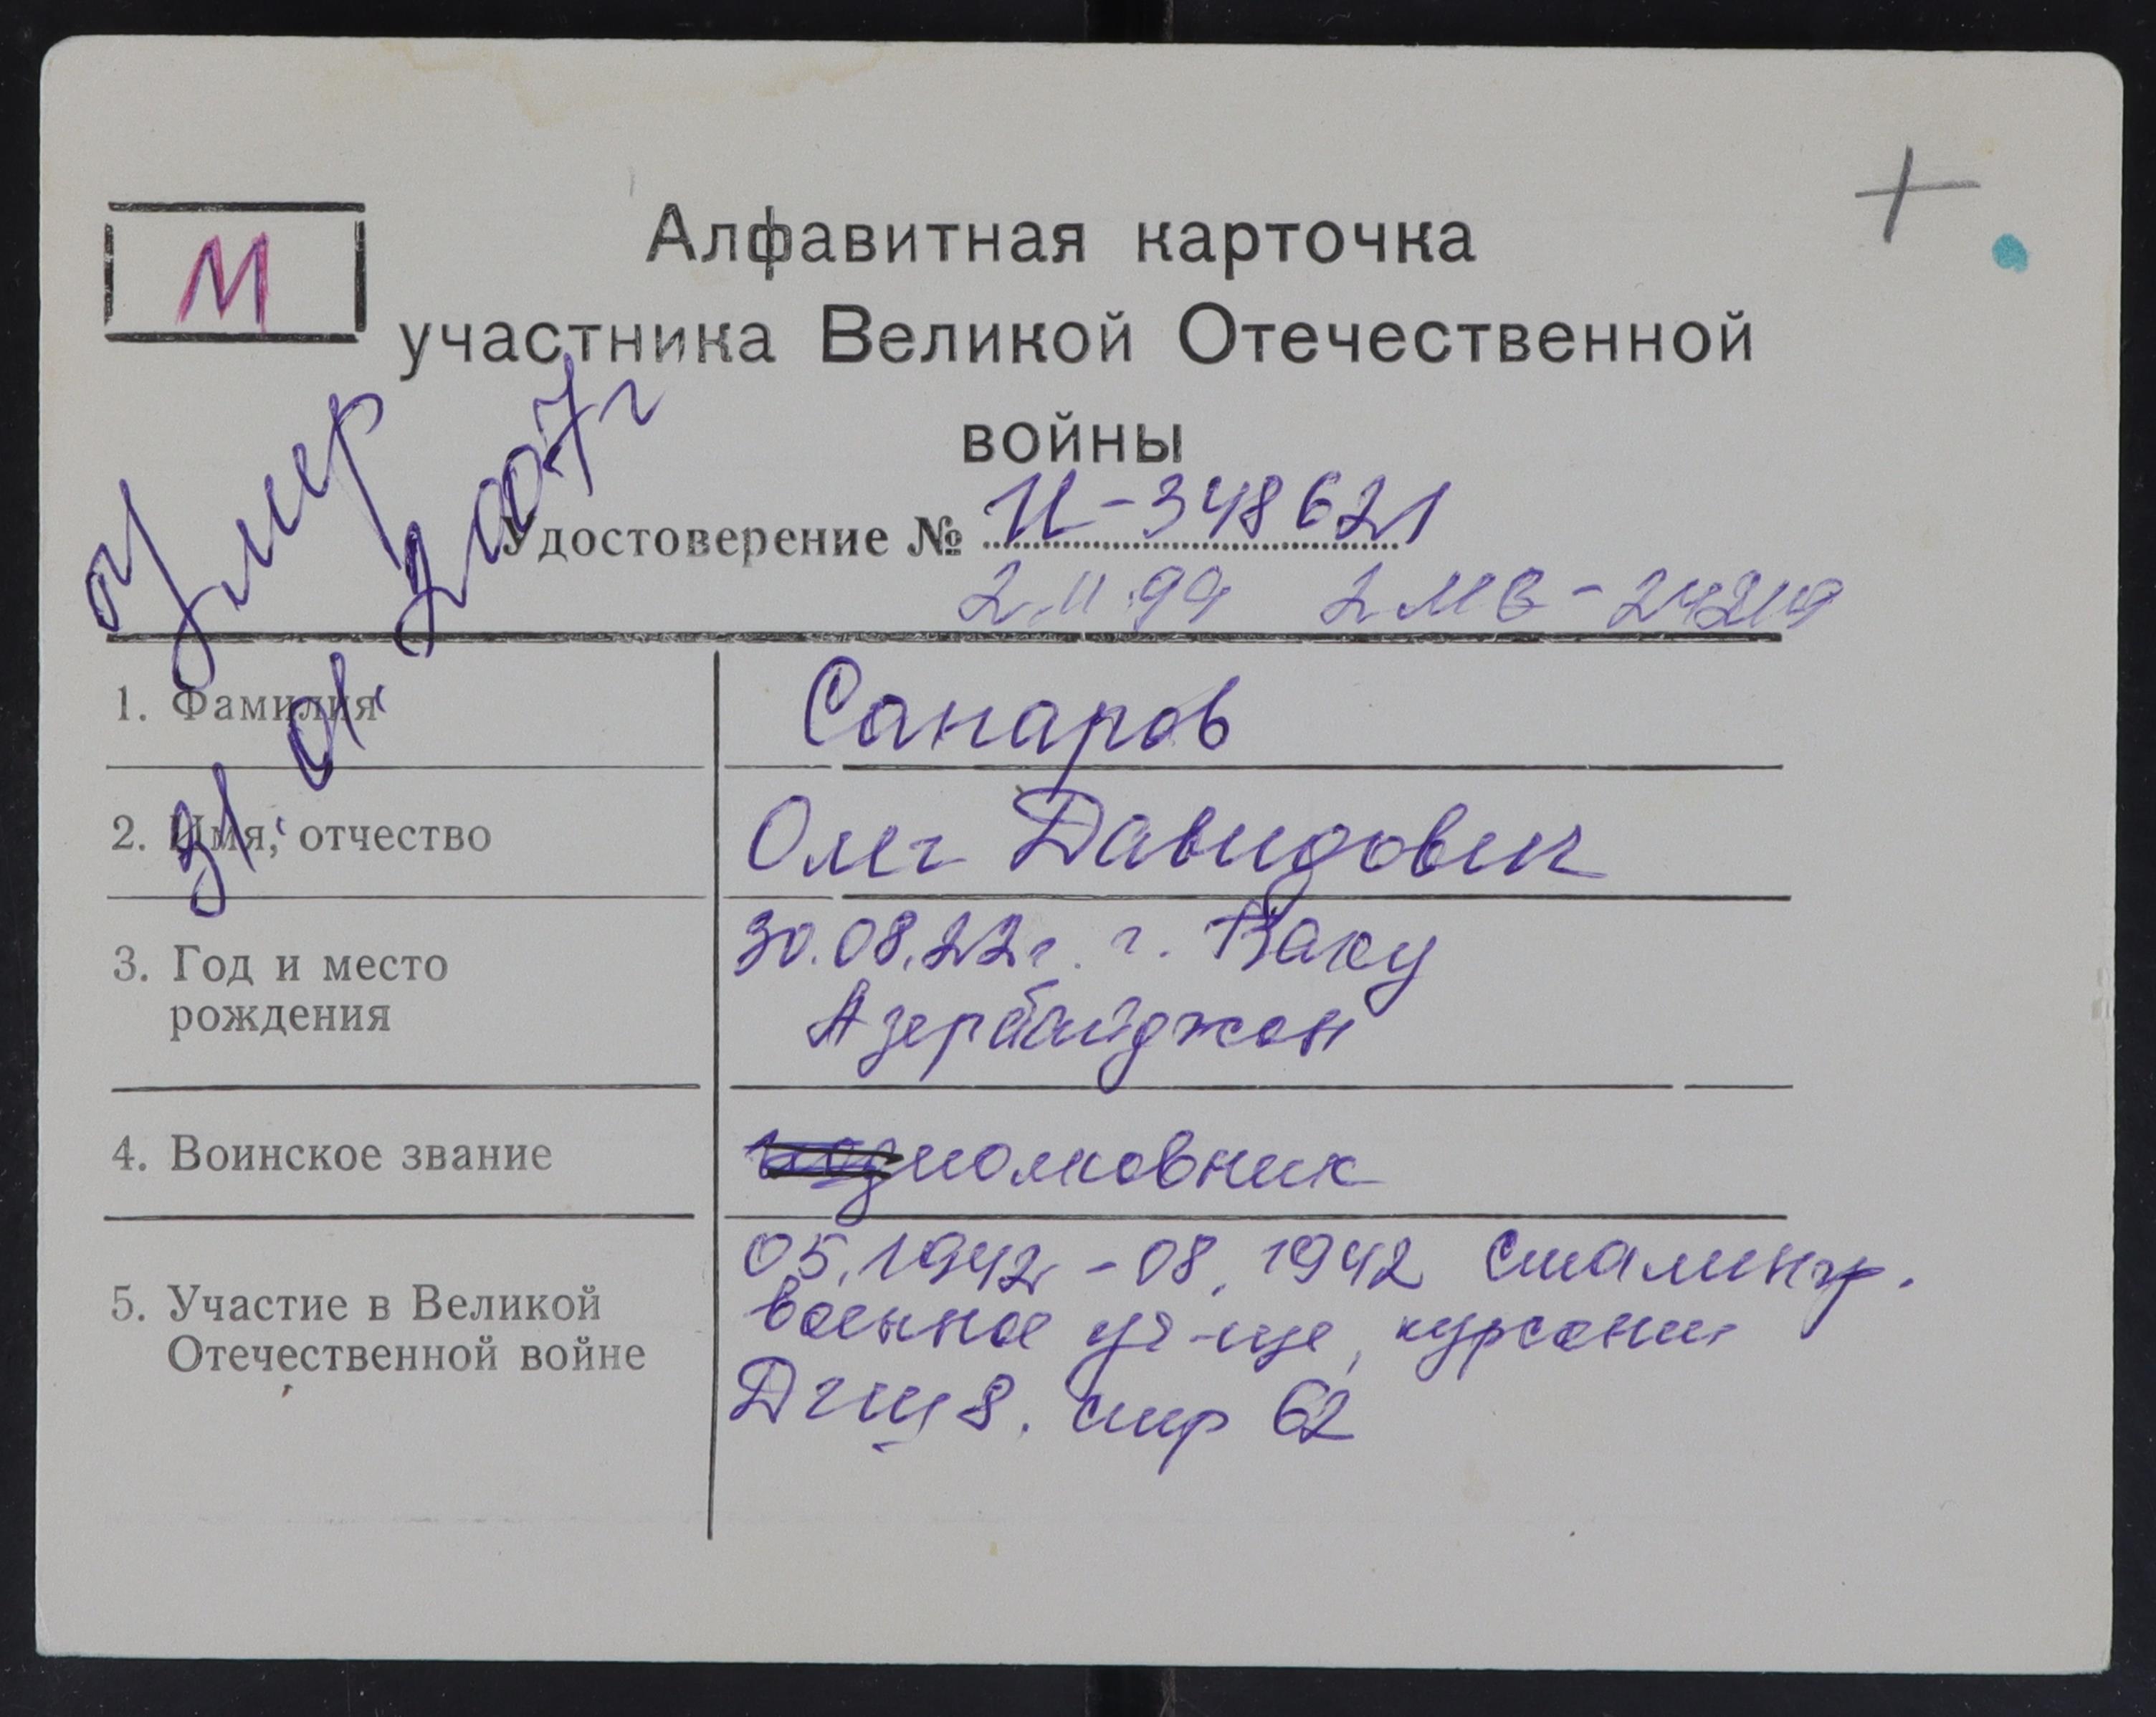 М
Алфавитная карточка
участника Великой Отечественной
войны
Умер
31.01.2007г
Удостоверение № И-348621
2.11.99 2МВ-24219
1. Фамилия Санаров
2. Имя, отчество Олег Давидович
3. Год и место рождения 30.08.22г. г. Баку
Азербайджан
4. Воинское звание подполковник
5. Участие в Великой Отечественной войне 05.1942 - 08.1942 Сталингр.
военное уч-ще, курсант
ДГШ 8. стр 62